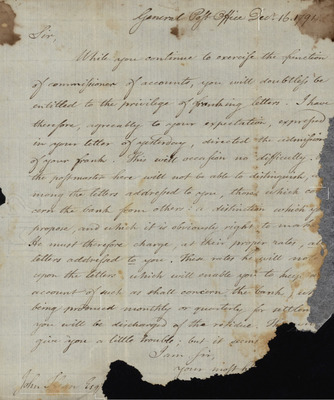 General Post Office Dec. 16. 179
Sir,
While you continue to exercise the function
of commissioner of accounts, you will doubtless be
entitled to the privilege of franking letters. I have
therefore, agreeably to your expectation, expressed
in your letter of yesterday, directed the admission
of your frank. This will occasion no difficulty
the postmaster here will not be able to distinguish,
mong the letters addressed to you, those which con
cern the bank from others: a distinction which y
propose, and which it is obviously right to make
He must therefore charge, at their proper rates, al
letters addressed to you. These rates he will no
upon the letters which will enable you to keep
account of such as shall concern the bank; w
being produced monthly or quarterly for settlem
you will be discharged of the residue. This
give you a little trouble; but it seems
I am Sir,
Your most
John Esq